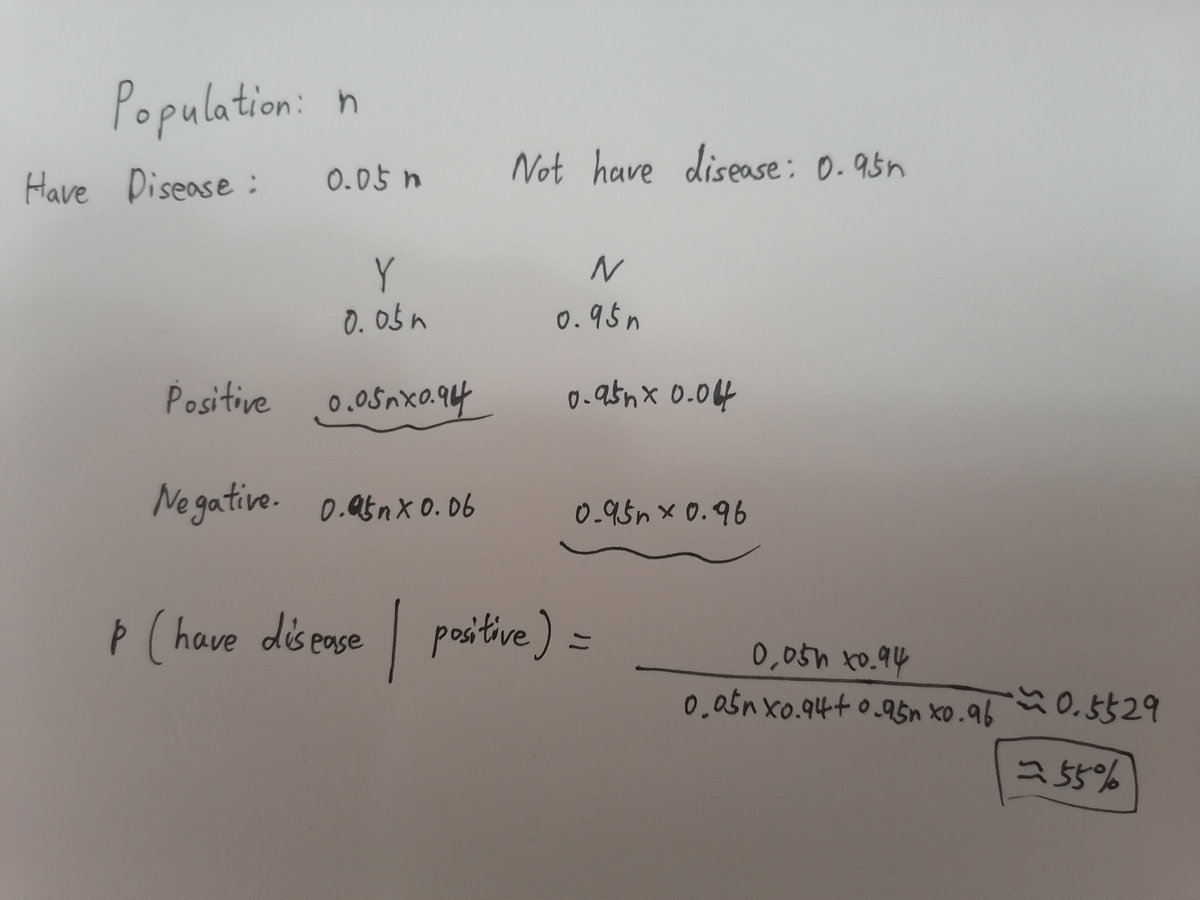 Population: n
Have Disease: 0.05n Not have disease: 0.95n
Y N
0.05n 0.95n
Positive 0.05n×0.94 0.95n×0.04
Negative. 0.05n×0.06 0.95n×0.96
P(have disease | positive) = 0.05n×0.94
0.05n×0.94+0.95n×0.96 ≈ 0.5529
≈ 55%